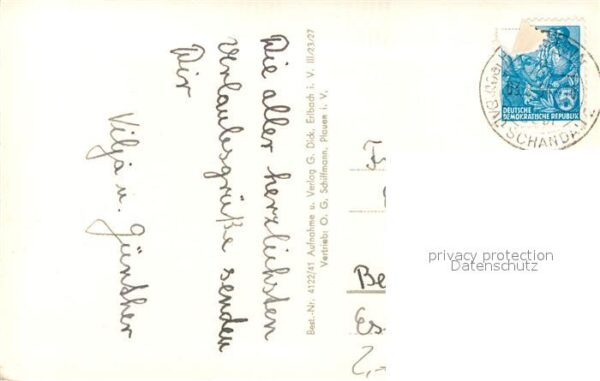 Die aller herzlichsten
Urlaubsgrüße senden
Dir
Vilja u. Günther
Best.-Nr. 4122/41 Aufnahme u. Verlag G. Dick, Erlbach i. V. III/23/27
Vertrieb: O. G. Schiffmann, Plauen i. V.
DEUTSCHE
DEMOKRATISCHE REPUBLIK
5
SCHANDAU
Be
Es
2,-
privacy protection
Datenschutz